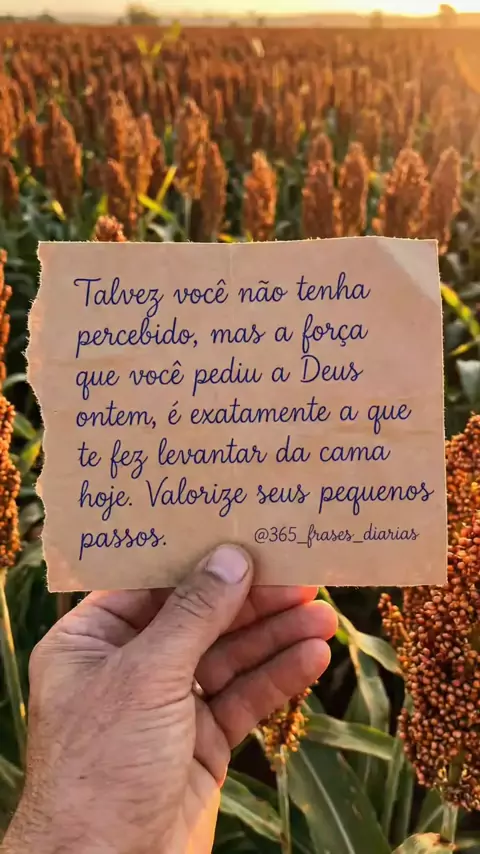 Talvez você não tenha
percebido, mas a força
que você pediu a Deus
ontem, é exatamente a que
te fez levantar da cama
hoje. Valorize seus pequenos
passos.
@365_frases_diarias